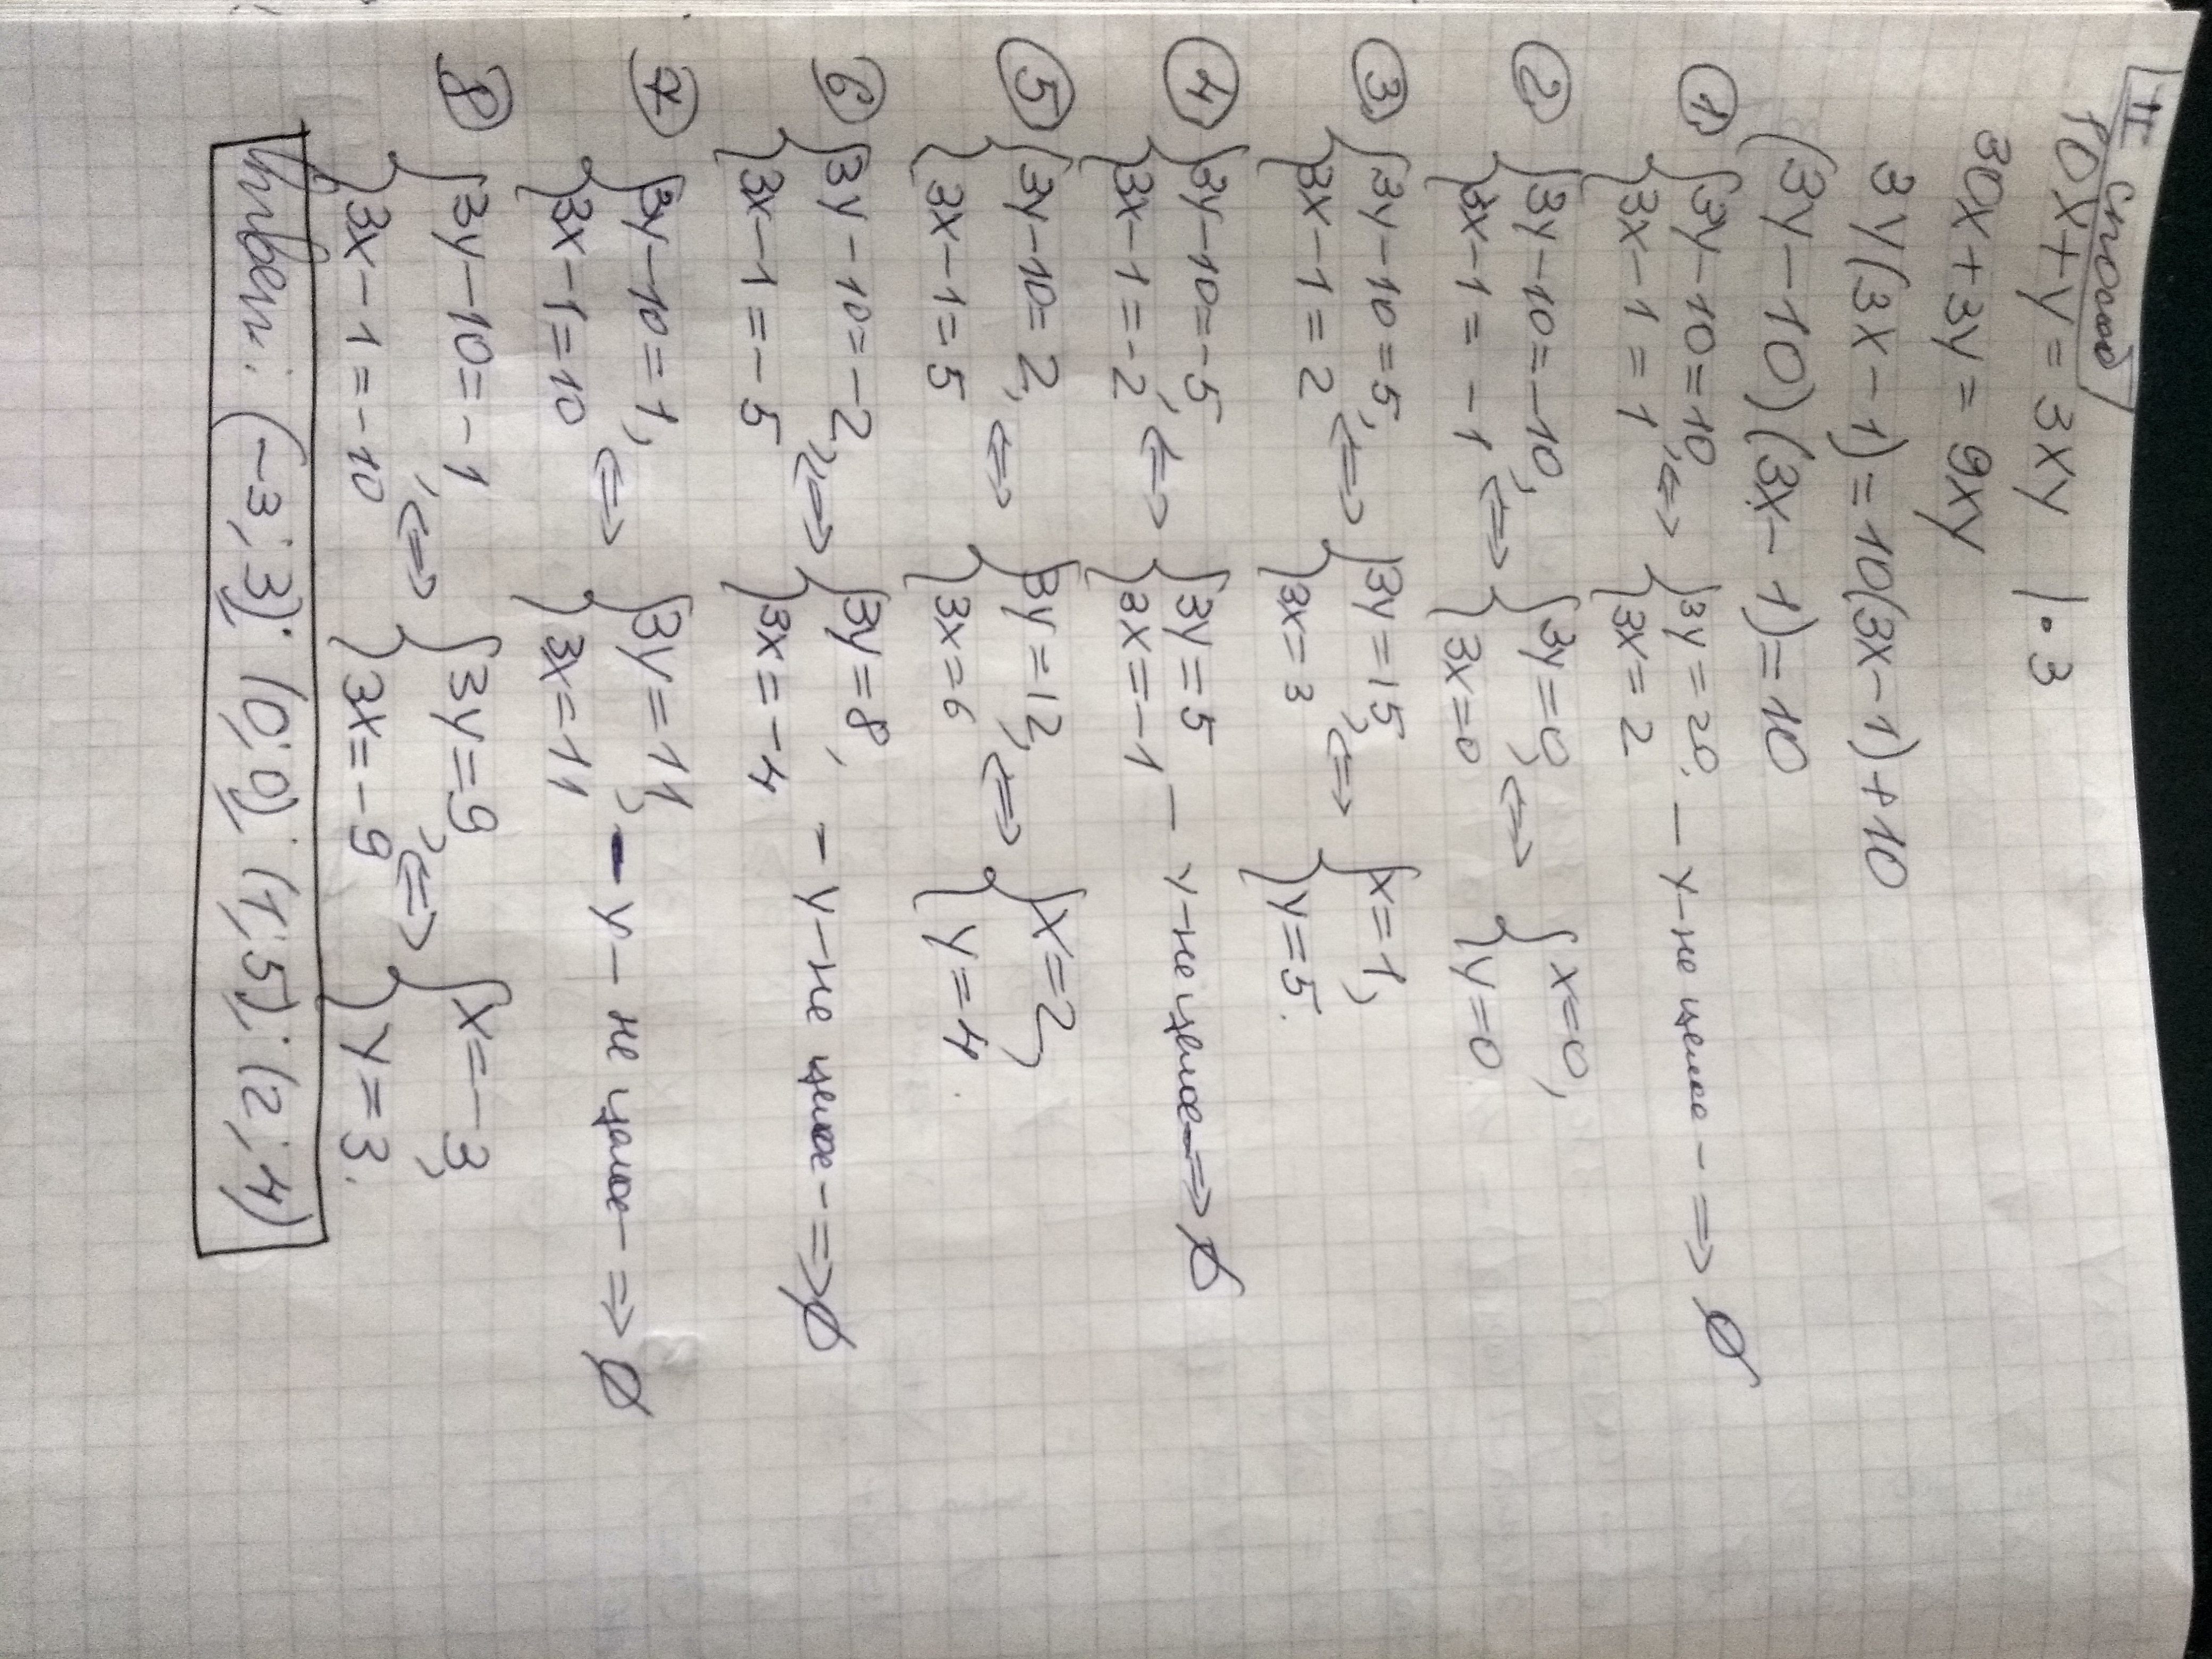 II способ
10x+y=3xy |·3
30x+3y=9xy
3y(3x-1)=10(3x-1)+10
(3y-10)(3x-1)=10
① {3y-10=10, 3x-1=1 <=> {3y=20, 3x=2 - x-не целое - => ∅
② {3y-10=-10, 3x-1=-1 <=> {3y=0, 3x=0 <=> {x=0, y=0
③ {3y-10=5, 3x-1=2 <=> {3y=15, 3x=3 <=> {x=1, y=5.
④ {3y-10=-5, 3x-1=-2 <=> {3y=5 3x=-1 - x-не целое => ∅
⑤ {3y-10=2, 3x-1=5 <=> {3y=12, 3x=6 <=> {x=2, y=4.
⑥ {3y-10=-2, 3x-1=-5 <=> {3y=8, 3x=-4 - y-не целое - => ∅
⑦ {3y-10=1, 3x-1=10 <=> {3y=11, 3x=11 - y-не целое - => ∅
⑧ {3y-10=-1, 3x-1=-10 <=> {3y=9, 3x=-9 <=> {x=-3, y=3.
Ответ: (-3; 3); (0; 0); (1; 5); (2; 4)